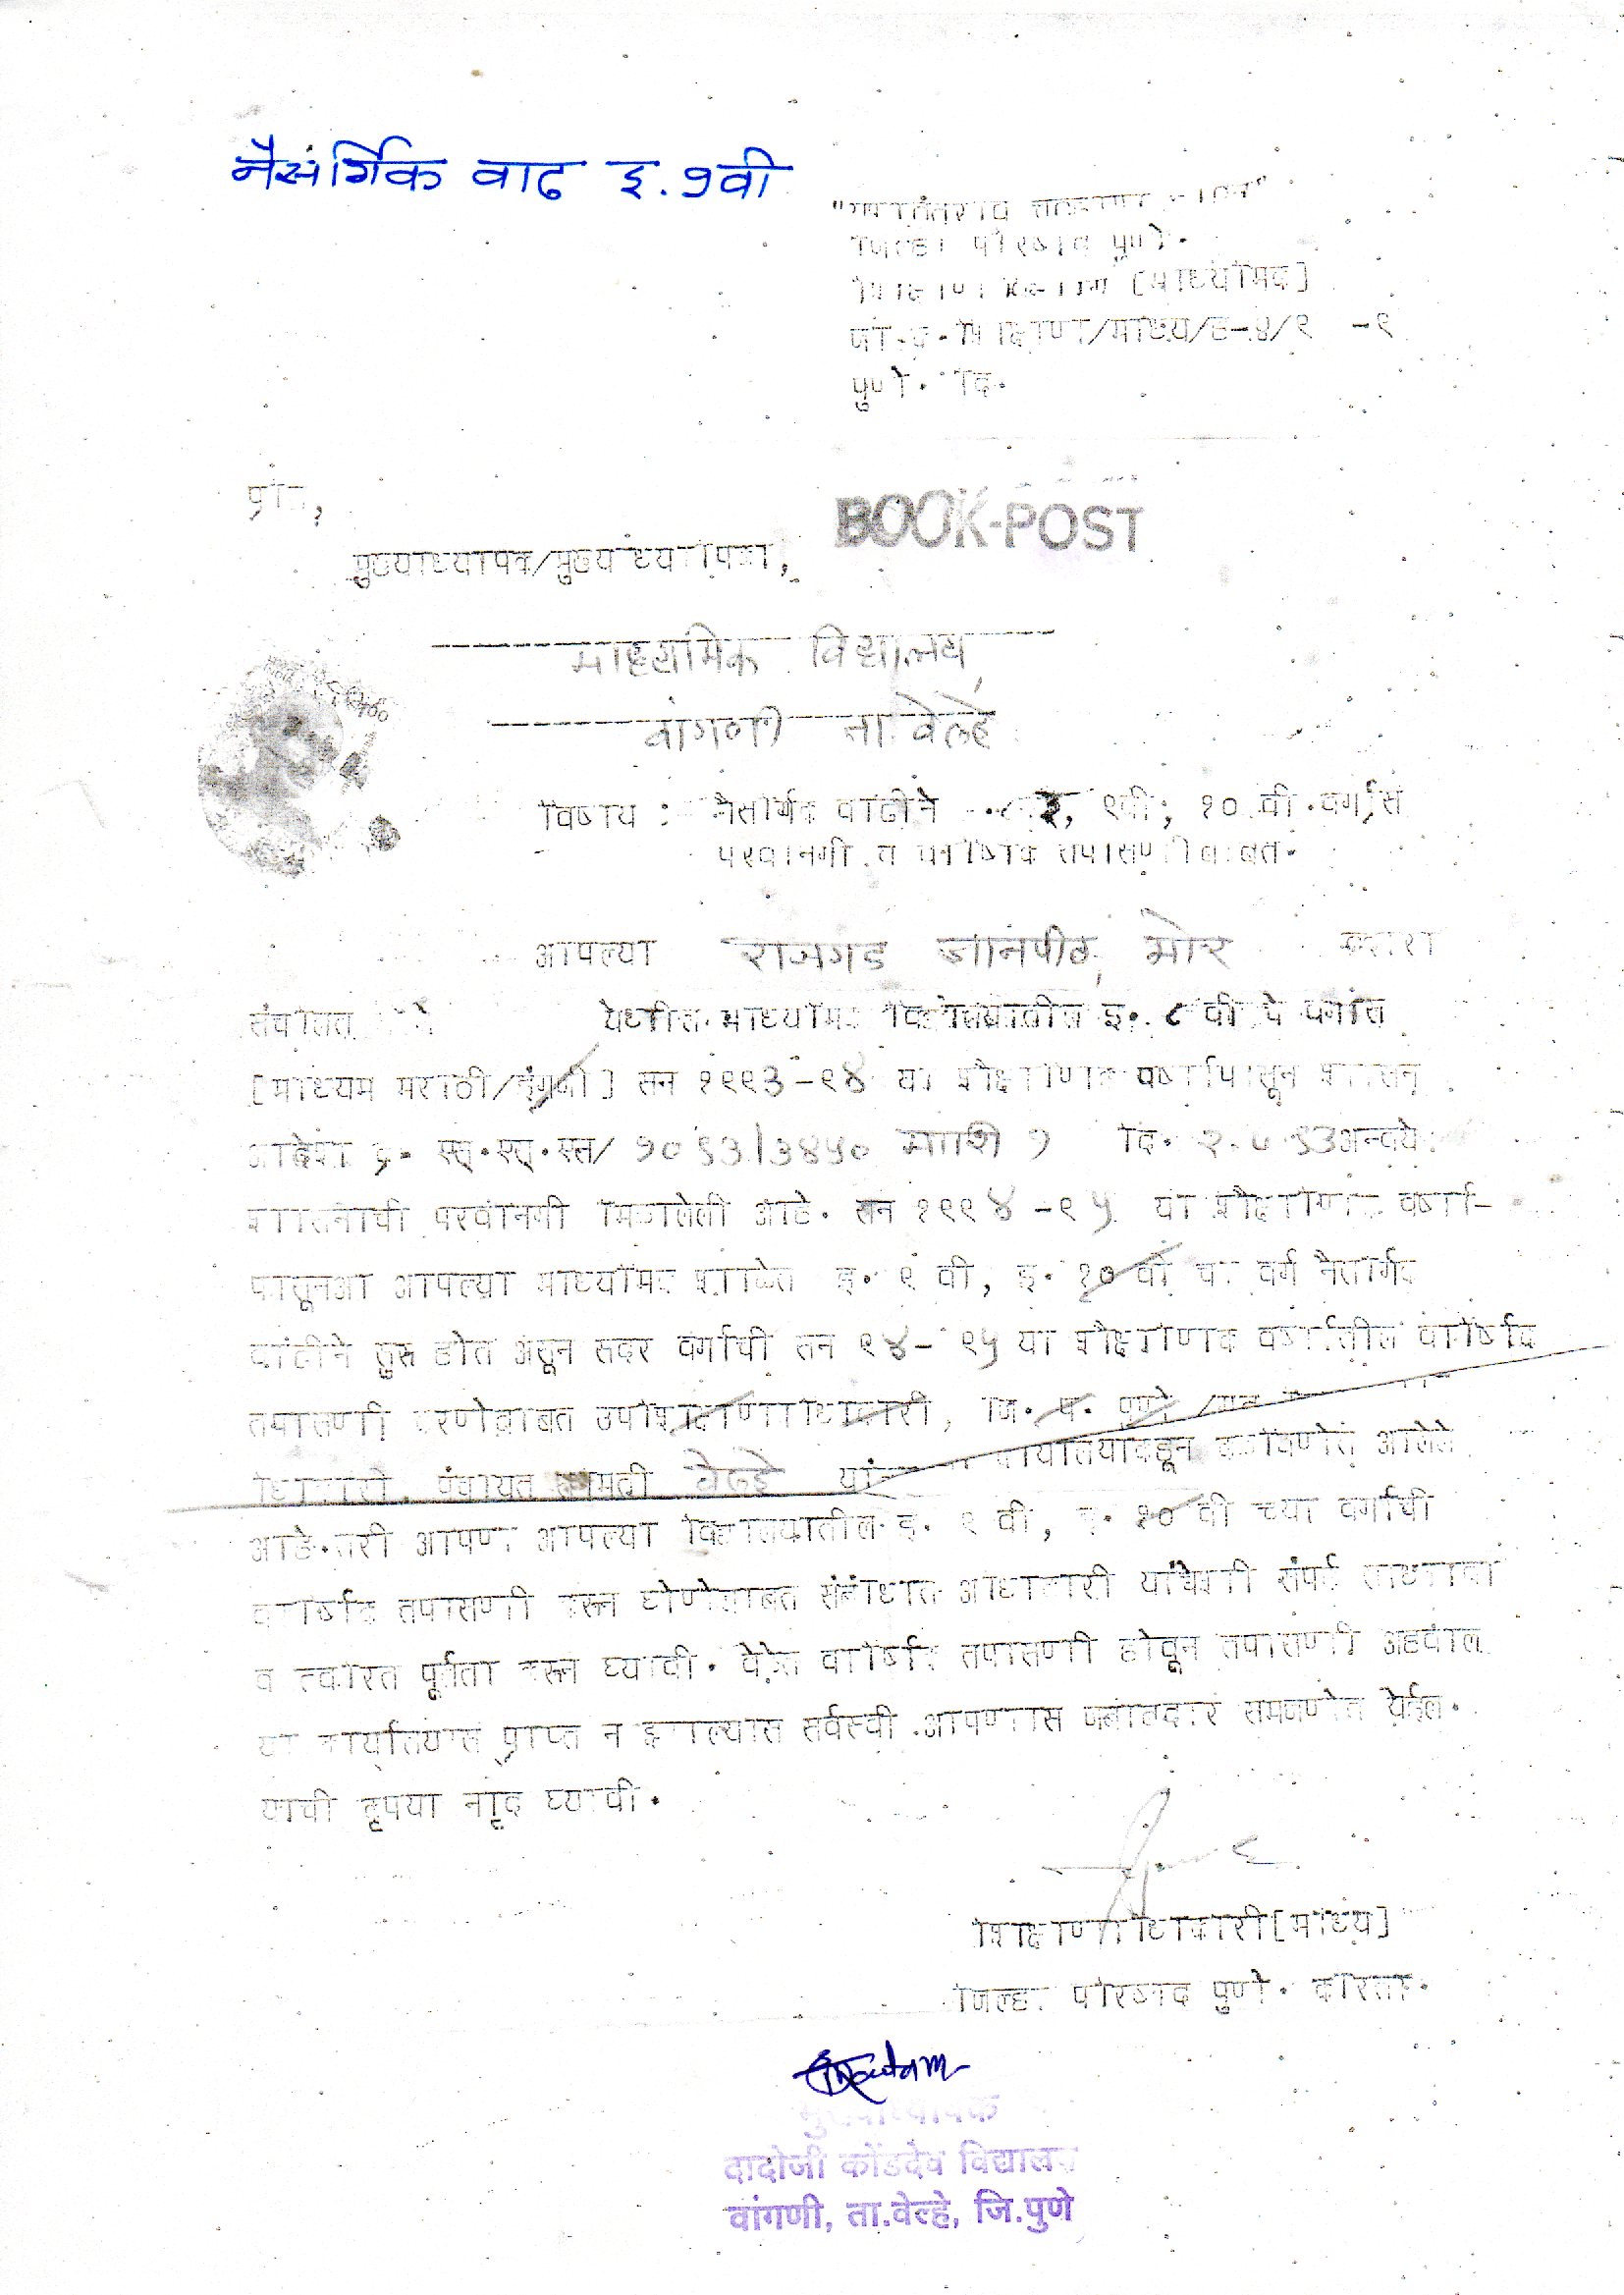 नैसर्गिक वाढ इ. ९वी
"यशवंतराव चव्हाण भवन"
जिल्हा परिषद पुणे.
शिक्षण विभाग [माध्यमिक]
जा.क्र.शिक्षण/माध्य/ह-४/९ -९
पुणे. दि.
प्रति,
BOOK-POST
मुख्याध्यापक/मुख्याध्यापिका,
माध्यमिक विद्यालय,
वांगणी ता वेल्हे
विषय : नैसर्गिक वाढीने ९वी, १० वी.वर्गास
परवानगी व वार्षिक तपासणीबाबत.
आपल्या राजगड ज्ञानपीठ, भोर
संचलित येथील माध्यमिक विद्यालयातील इ. ८ वी चे वर्गास
[माध्यम मराठी/इंग्रजी] सन १९९३-९४ या शैक्षणिक वर्षापासून शासन
आदेश क्र. एस.एस.एन/ १०९३/३४५० माशि १ दि. २.७.९३अन्वये
शासनाची परवानगी मिळालेली आहे. सन १९९४-९५ या शैक्षणिक वर्षा-
पासूनआ आपल्या माध्यमिक शाळेत इ. ९ वी, इ. १० वी चा वर्ग नैसर्गिक
वाढीने सुरु होत असून सदर वर्गाची सन ९४- ९५ या शैक्षणिक वर्षातील वार्षिक
तपासणी करणेबाबत उपशिक्षणाधिकारी, जि. प. पुणे /गट
धिकारी, पंचायत समिती वेल्हे यांच्या कार्यालयाकडून कळविणेत आलेले
आहे.तरी आपण आपल्या विद्यालयातील इ. ९ वी, इ. १० वी च्या वर्गाची
वार्षिक तपासणी करून घेणेबाबत संबंधित अधिकारी यांचेशी संपर्क साधावा
व त्वरित पूर्तता करून घ्यावी. वेळेत वार्षिक तपासणी होवून तपासणी अहवाल
या कार्यालयास प्राप्त न झाल्यास सर्वस्वी आपणास जबाबदार समजणेत येईल.
याची कृपया नोंद घ्यावी.
शिक्षणाधिकारी[माध्य]
जिल्हा परिषद पुणे. करिता.
मुख्याध्यापक
दादोजी कोंडदेव विद्यालय
वांगणी, ता.वेल्हे, जि.पुणे